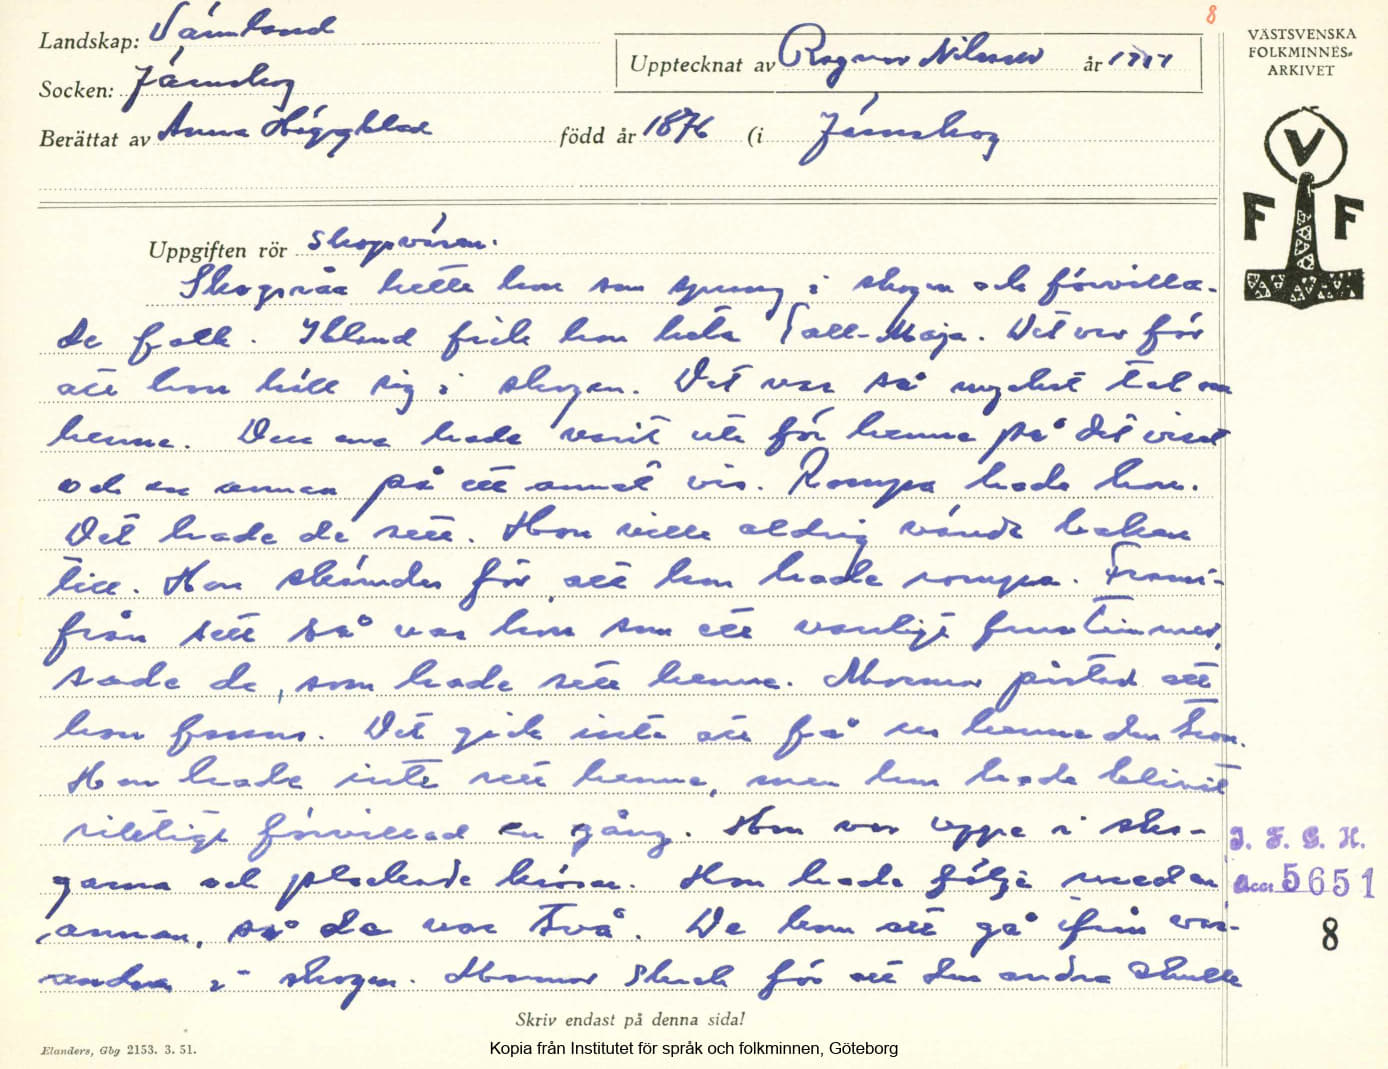 8
VÄSTSVENSKA
FOLKMINNES-
ARKIVET
Landskap: Värmland
Upptecknat av Ragnar Nilsson år
Socken: Järnskog
Berättat av Anna Högblad född år 1876 (i Järnskog
V
F F
Uppgiften rör Skogsråan.
Skogsråa hette hon som sprang i skogen och förvilla-
de folk. Ibland fick hon heta Tall-Maja. Det var för
att hon höll sig i skogen. Det var så mycket tal om
henne. Den ena hade varit ute för henne på det viset
och en annan på ett annat vis. Rompa hade hon.
Det hade de sett. Hon ville aldrig vända baken
till. Hon skämdes för att hon hade rompa. Frami-
från sett så var hon som ett vanligt fruntimmer,
sade de, som hade sett henne. Mormor påstod att
hon fanns. Det gick inte att få ur henne den tron.
Hon hade inte sett henne, men hon hade blivit
riktigt förvillad en gång. Hon var uppe i sko-
garna och plockade bären. Hon hade följe med en
annan, så de var två. De kom att gå ifrån var-
andra i skogen. Mormor skrek för att den andra skulle
I. F. G. H.
Acc. 5651
8
Skriv endast på denna sida!
Elanders, Gbg 2153. 3. 51.
Kopia från Institutet för språk och folkminnen, Göteborg